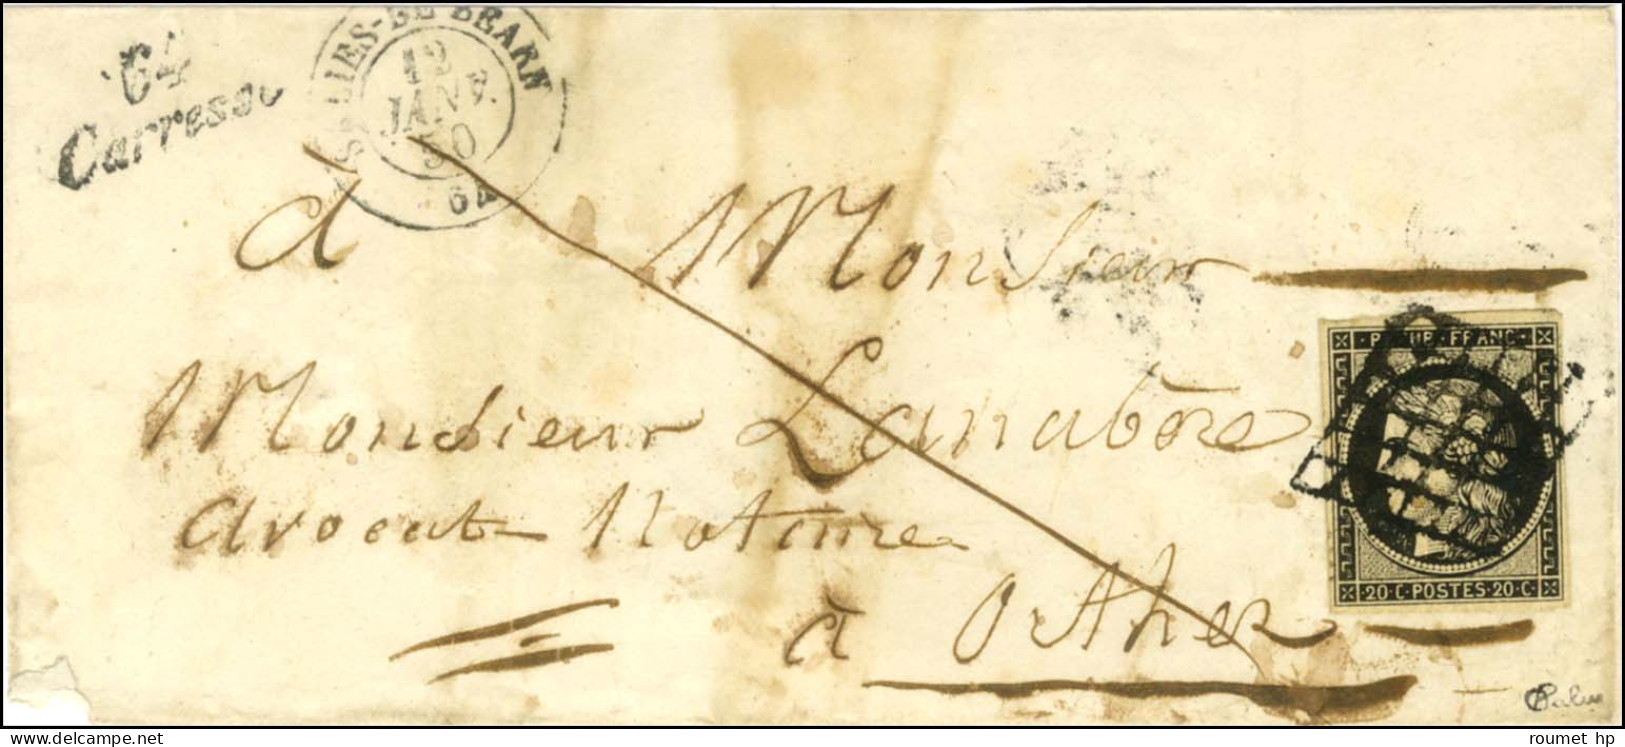 64
Carresse
SALIES-DE BEARN
12
JANV.
50
64
à Monsieur
Monsieur Lanabère
avocat Notaire
à Orthez
REPUB FRANC
20·C·POSTES·20·C
delcampe.net
roumet hp